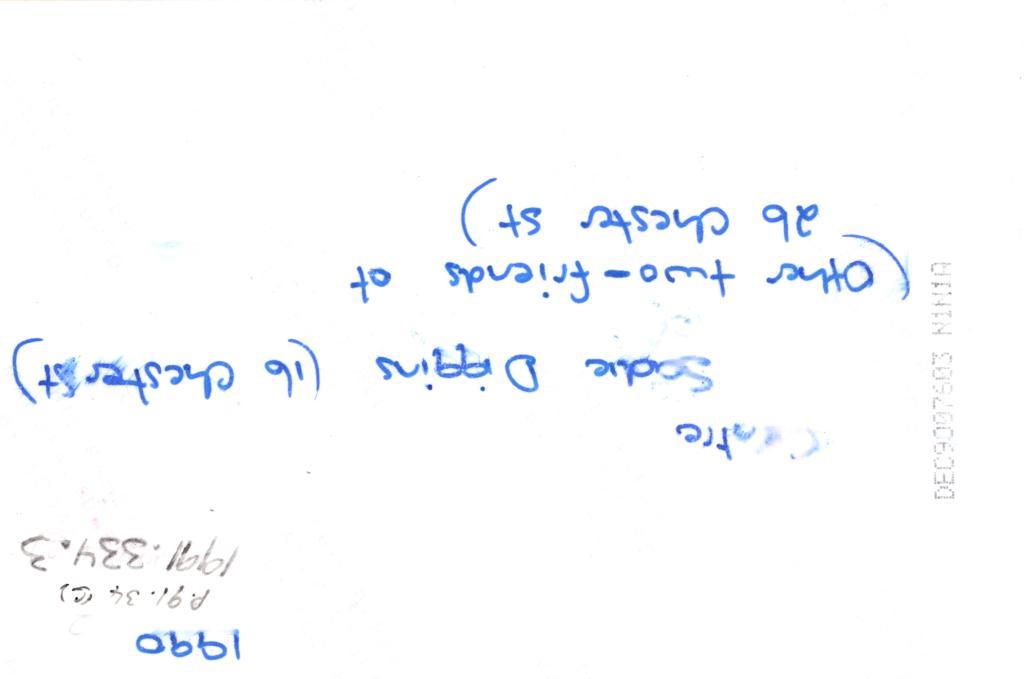 1990
P.91.34 (C)
1991.334.3
Centre
Sadie Diggins (16 Chester St)
(Other two-friends of
26 Chester St)
DEC9007603 NINIA